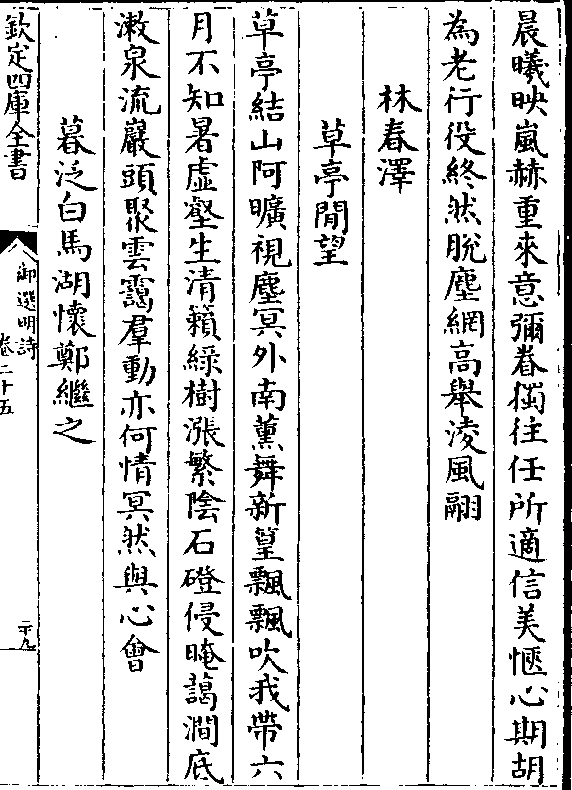 晨曦映嵐赫重來意彌眷獨往任所適信美愜心期胡
為老行役終然脫塵網高舉淩風翮
林春澤
草亭閒望
草亭結山阿曠視塵冥外南薰舞新篁飄飄吹我帶六
月不知暑虛壑生清籟綠樹漲繁陰石磴侵晻藹澗底
漱泉流巖頭聚雲靄羣動亦何情冥然與心會
暮泛白馬湖懷鄭繼之
欽定四庫全書
御選明詩
卷二十五